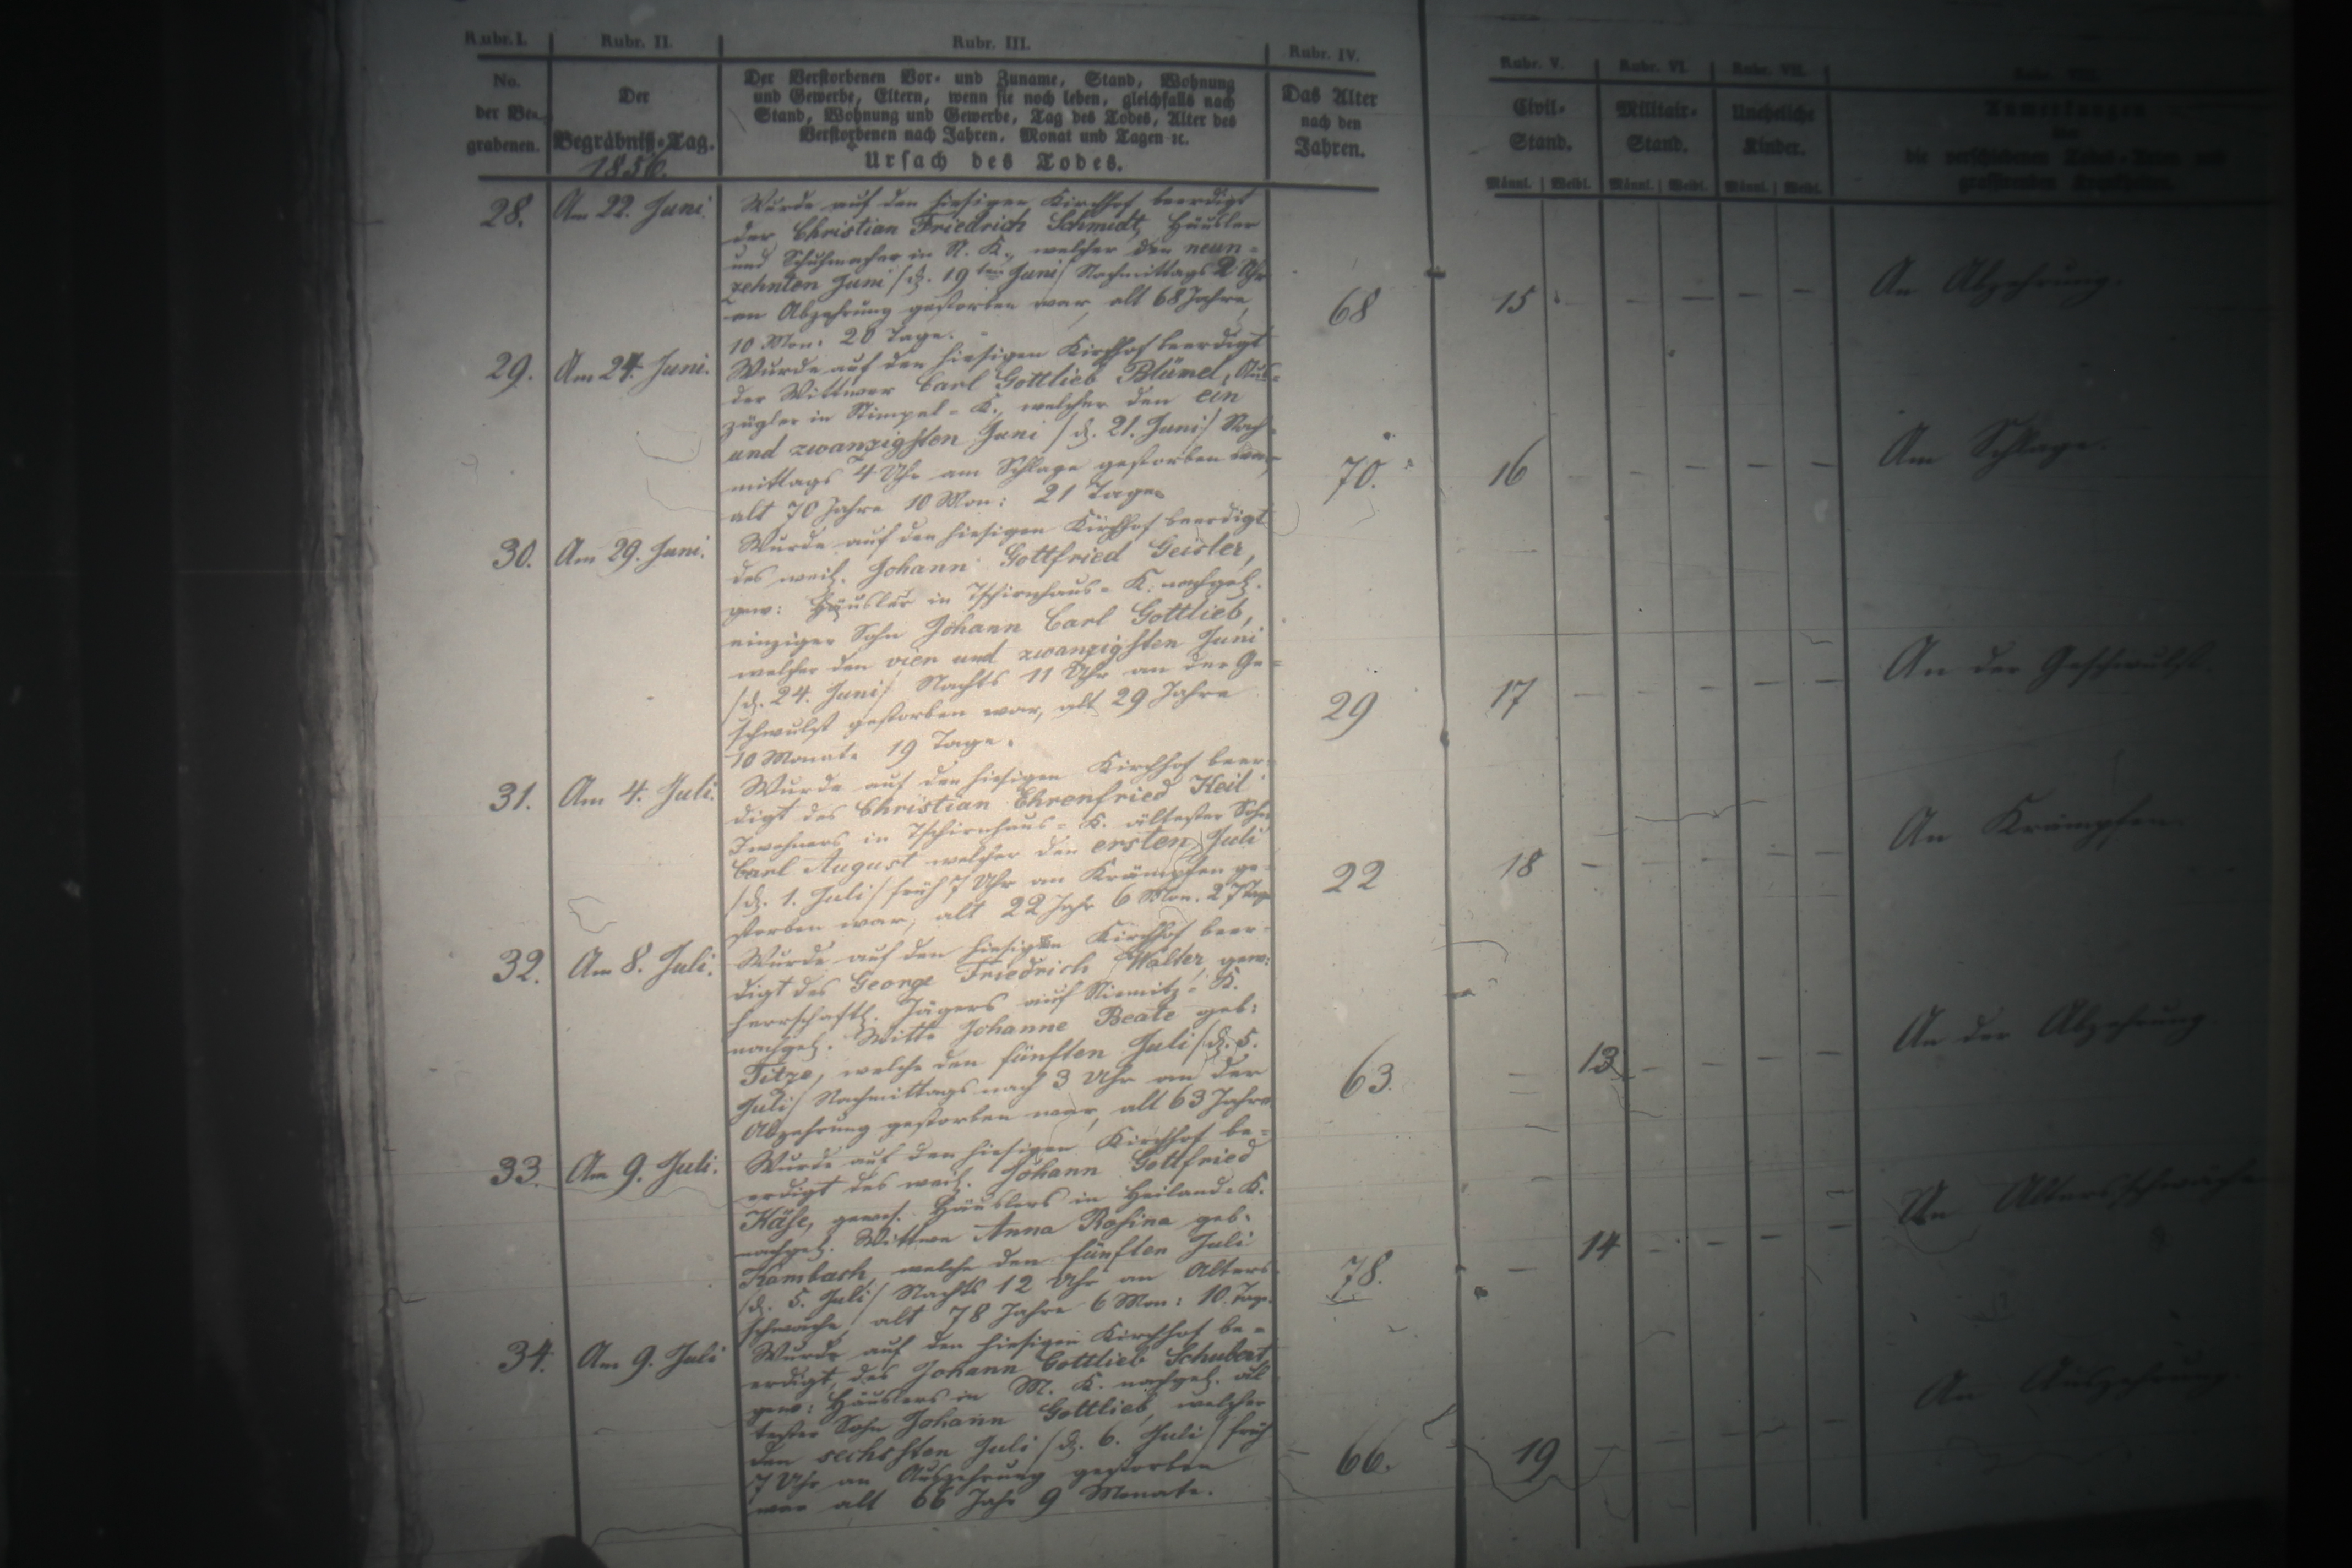 Rubr. I. Rubr. II. Rubr. III. Rubr. IV. Rubr. V. Rubr. VI. Rubr. VII.
No. der Begrabenen.
Der Begräbniß-Tag.
1856.
Der Verstorbenen Vor- und Zuname, Stand, Wohnung
und Gewerbe, Eltern, wenn sie noch leben, gleichfalls nach
Stand, Wohnung und Gewerbe, Tag des Todes, Alter des
Verstorbenen nach Jahren, Monat und Tagen ꝛc.
Ursach des Todes.
Das Alter
nach den
Jahren.
Civil-
Stand.
Militair-
Stand.
Uneheliche
Kinder.
Männl. Weibl. Männl. Weibl. Männl. Weibl.
Anmerkungen
die verschiedenen und
grassirenden Krankheiten.
28. Am 22. Juni.
Wurde auf den hiesigen Kirchhof beerdigt
der Christian Friedrich Schmidt, Häusler
und Schuhmacher in N. K., welcher den neun-
zehnten Juni /d. 19ten Juni/ Nachmittags 2 Uhr
an Abzehrung gestorben war, alt 68 Jahre,
10 Mon: 20 Tage.
68 15 — — — — An Abzehrung.
29. Am 24. Juni.
Wurde auf den hiesigen Kirchhof beerdigt
der Wittwer Carl Gottlieb Blümel, Aus-
zügler in Stimpel-K., welcher den ein
und zwanzigsten Juni /d. 21. Juni/ Nach-
mittags 4 Uhr am Schlage gestorben war,
alt 70 Jahre 10 Mon: 21 Tage.
70. 16 — — — — — Am Schlage.
30. Am 29. Juni.
Wurde auf den hiesigen Kirchhof beerdigt
des weil. Johann Gottfried Geisler,
gew: Häusler in Tschirnhaus-K. nachgel.
einziger Sohn Johann Carl Gottlieb,
welcher den vier und zwanzigsten Juni
/d. 24. Juni/ Nachts 11 Uhr an der Ge-
schwulst gestorben war, alt 29 Jahre
10 Monate 19 Tage.
29 17 — — — — — An der Geschwulst.
31. Am 4. Juli.
Wurde auf den hiesigen Kirchhof beer-
digt des Christian Ehrenfried Keil
Inwohners in Tschirnhaus-K. ältester Sohn
Carl August welcher den ersten Juli
/d. 1. Juli/ früh 7 Uhr an Krämpfen ge-
storben war, alt 22 Jahr 6 Mon. 27 Tage
22 18 — — — — — An Krämpfen.
32. Am 8. Juli.
Wurde auf den hiesigen Kirchhof beer-
digt des George Friedrich Walter, gew:
herrschaftl. Jägers auf Niemitz-K.
nachgel. Wittwe Johanne Beate geb:
Titze, welche den fünften Juli /d. 5.
Juli/ Nachmittags nach 3 Uhr an der
Abzehrung gestorben war, alt 63 Jahre
63. — 13 — — — — An der Abzehrung
33. Am 9. Juli.
Wurde auf den hiesigen Kirchhof be-
erdigt des weil. Johann Gottfried
Käse, gewes. Häuslers in Heiland-K.
nachgel. Wittwe Anna Rosina geb.
Kambach, welche den fünften Juli
/d. 5. Juli/ Nachts 12 Uhr an Alters-
schwäche, alt 78 Jahre 6 Mon: 10. Tage.
78. — 14 — — — — An Altersschwäche
34. Am 9. Juli
Wurde auf den hiesigen Kirchhof be-
erdigt, des Johann Gottlieb Schubert
gew: Häuslers in M. K. nachgel. äl-
tester Sohn Johann Gottlieb, welcher
den sechsten Juli /d. 6. Juli/ früh
7 Uhr an Auszehrung gestorben
war alt 66 Jahr 9 Monate.
66. 19 — — — — — An Auszehrung.